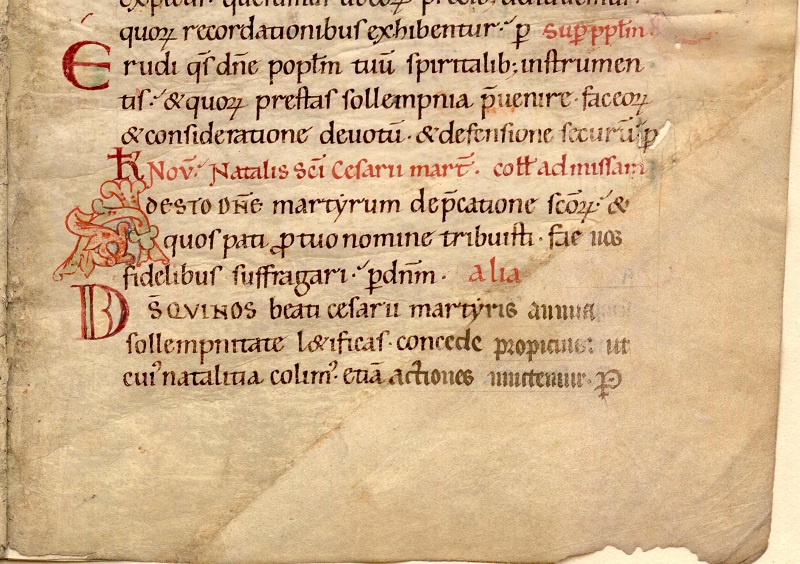 quoꝝ recordationibus exhibentur· ꝑ sup̄ pp̄lm̄
Erudi q̄s dn̄e pop̄lm̄ tuū spiritalib; instrumen
tis· & quoꝝ prestas sollempnia p̄uenire· face eoꝝ
& consideratione deuotū· & defensione securū· ꝑ
k̄ Nov̄· Natalis sc̄i Cesarii mart̄· coll̄ ad missam
ADESTO DN̄E martẏrum dep̄catione sc̄oꝝ· &
quos pati ꝓ tuo nomine tribuisti· fac uos
fidelibus suffragari· ꝑ dn̄m̄· alia
DS̄ QVI NOS beati cesarii martẏris annua
sollempnitate l&ificas· concede propicius· ut
cuiꝰ natalitia colimꝰ· etiā actiones imitemur· ꝑ